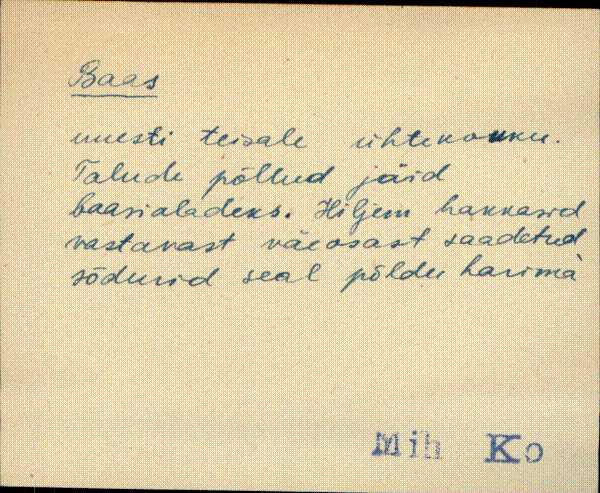 Baas
uuesti teisale ühtekokku.
Talude põllud jäid
baasialadeks. Hiljem hakkasid
vastavast väeosast saadetud
sõdurid seal põldu harima
Mih Ko